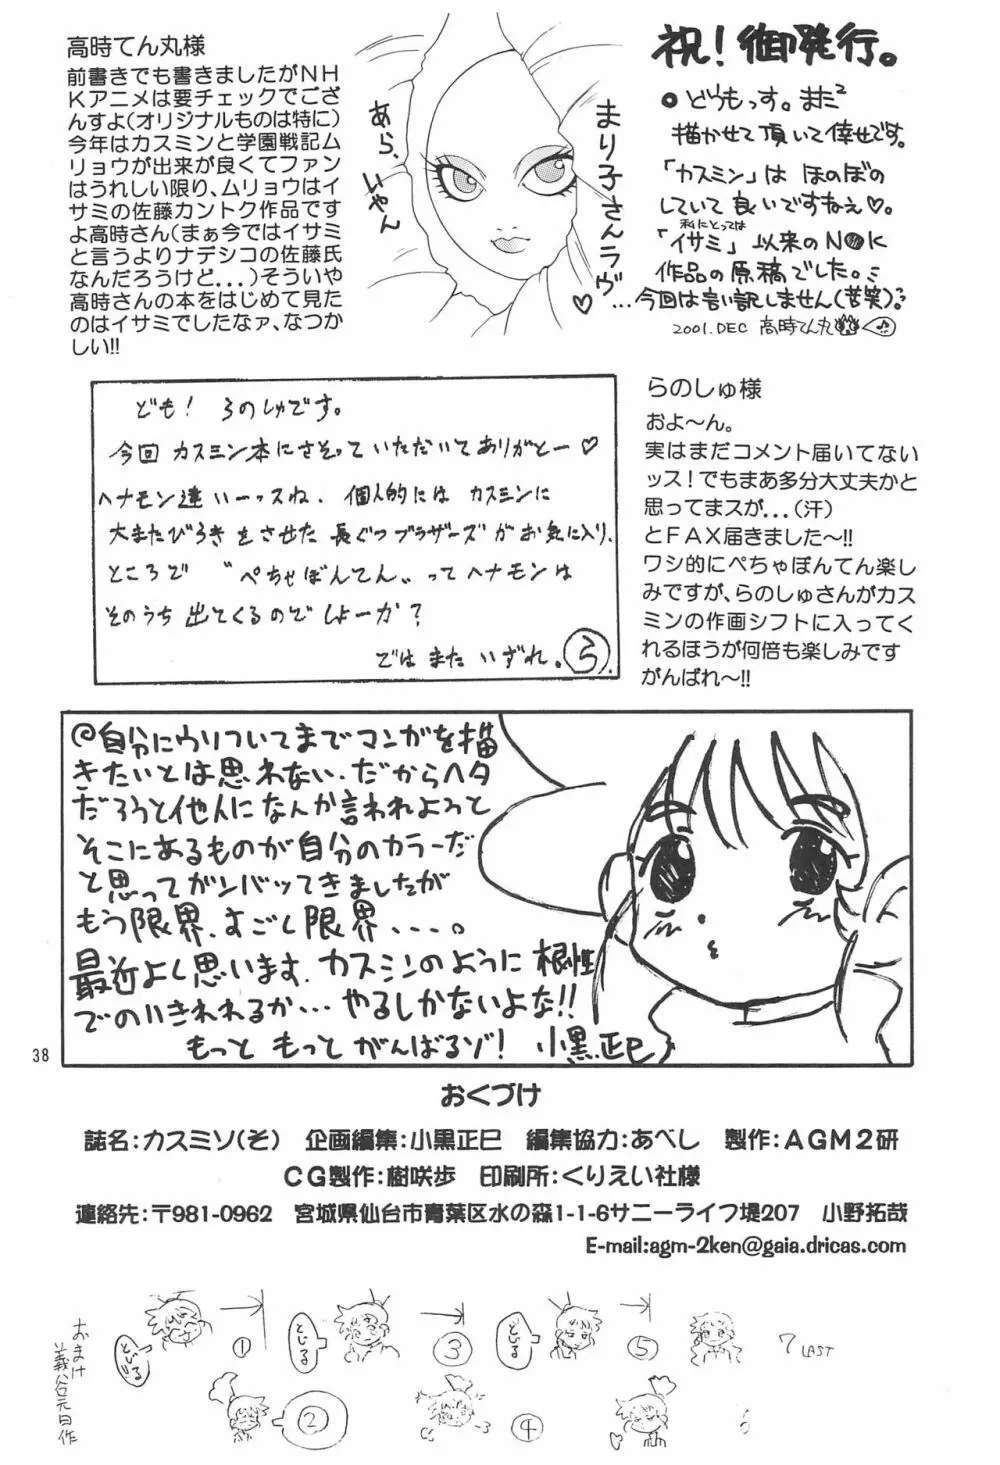 高時てん丸様
前書きでも書きましたがNH
Kアニメは要チェックでござ
んすよ(オリジナルものは特に)
今年はカスミンと学園戦記ム
リョウが出来が良くてファン
はうれしい限り、ムリョウはイ
サミの佐藤カントク作品です
よ高時さん(まぁ今ではイサミ
と言うよりナデシコの佐藤氏
なんだろうけど...)そういや
高時さんの本をはじめて見た
のはイサミでしたなァ、なつか
しい!!
あら、
いやん
まり子さんラヴ♡
祝!御発行。
●どうもっす。また2
描かせて頂いて倖せです。
「カスミン」は ほのぼの
していて良いですねぇ♡。
私にとっては
「イサミ」以来のN●K
作品の原稿でした。
...今回は言い訳しません(苦笑)。
2001.DEC 高時てん丸
ども! らのしゅです。
今回 カスミン本にさそっていただいてありがとー♡
ヘナモン達いーっスね、個人的には カスミンに
大またびらきをさせた 長ぐつブラザーズがお気に入り。
ところで "ぺちゃぼんてん"ってヘナモンは
そのうち出てくるのでしょーか?
では またいずれ。ら.
らのしゅ様
およ〜ん。
実はまだコメント届いてない
ッス!でもまあ多分大丈夫かと
思ってまスが...(汗)
とFAX届きました〜!!
ワシ的にぺちゃぼんてん楽し
みですが、らのしゅさんがカス
ミンの作画シフトに入ってく
れるほうが何倍も楽しみです
がんばれ〜!!
@自分にウソついてまでマンガを描
きたいとは思わない.だからヘタ
だろうと他人になんか言われようと
そこにあるものが自分のカラーだ
と思ってガンバッてきましたが
もう限界.すごし限界....。
最近よし思います.カスミンのように根性
でのりきれるか...やるしかないよな!!
もっと もっと がんばるゾ! 小黒正巳
38
おくづけ
誌名:カスミソ(そ) 企画編集:小黒正巳 編集協力:あべし 製作:AGM2研
CG製作:樹咲歩 印刷所:くりえい社様
連絡先:〒981-0962 宮城県仙台市青葉区水の森1-1-6サニーライフ堤207 小野拓哉
E-mail:agm-2ken@gaia.dricas.com
おまけ
とじる
①
とじる
③
とじる
⑤
7 LAST
②
④
6